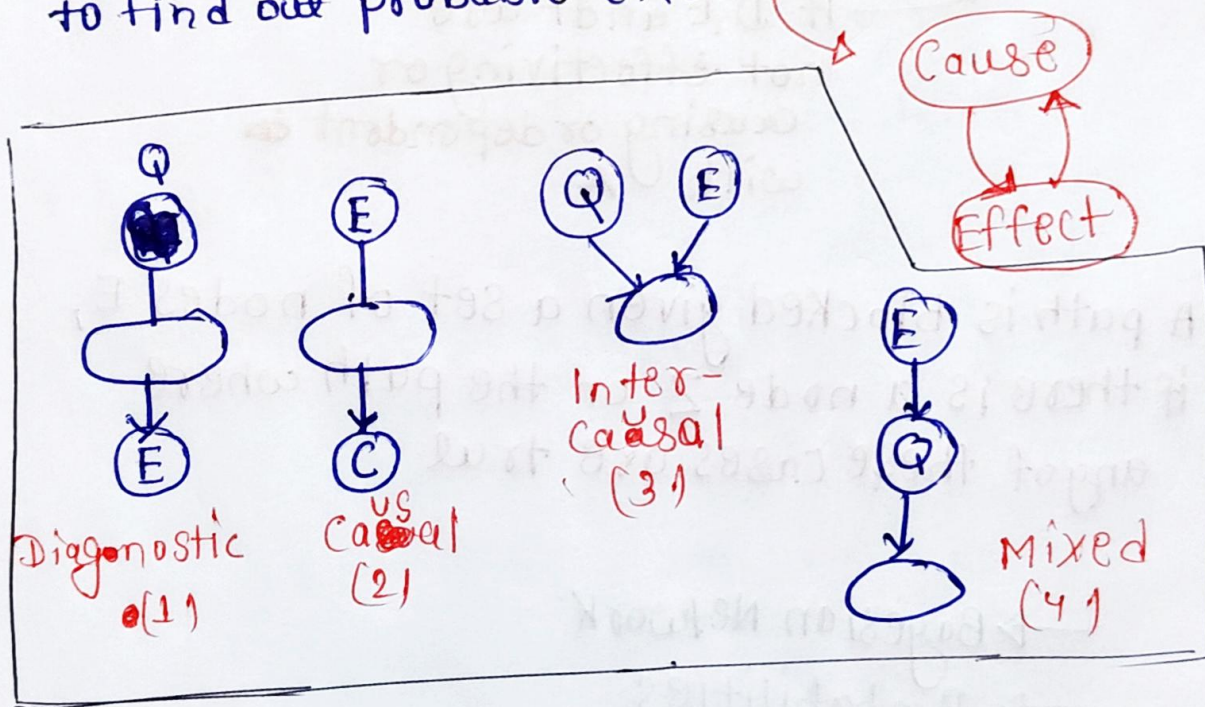 to find out
Cause
Effect
Q
E
Diagonostic
(1)
E
C
Causal
(2)
Q E
Inter-
causal
(3)
E
Q
Mixed
(4)